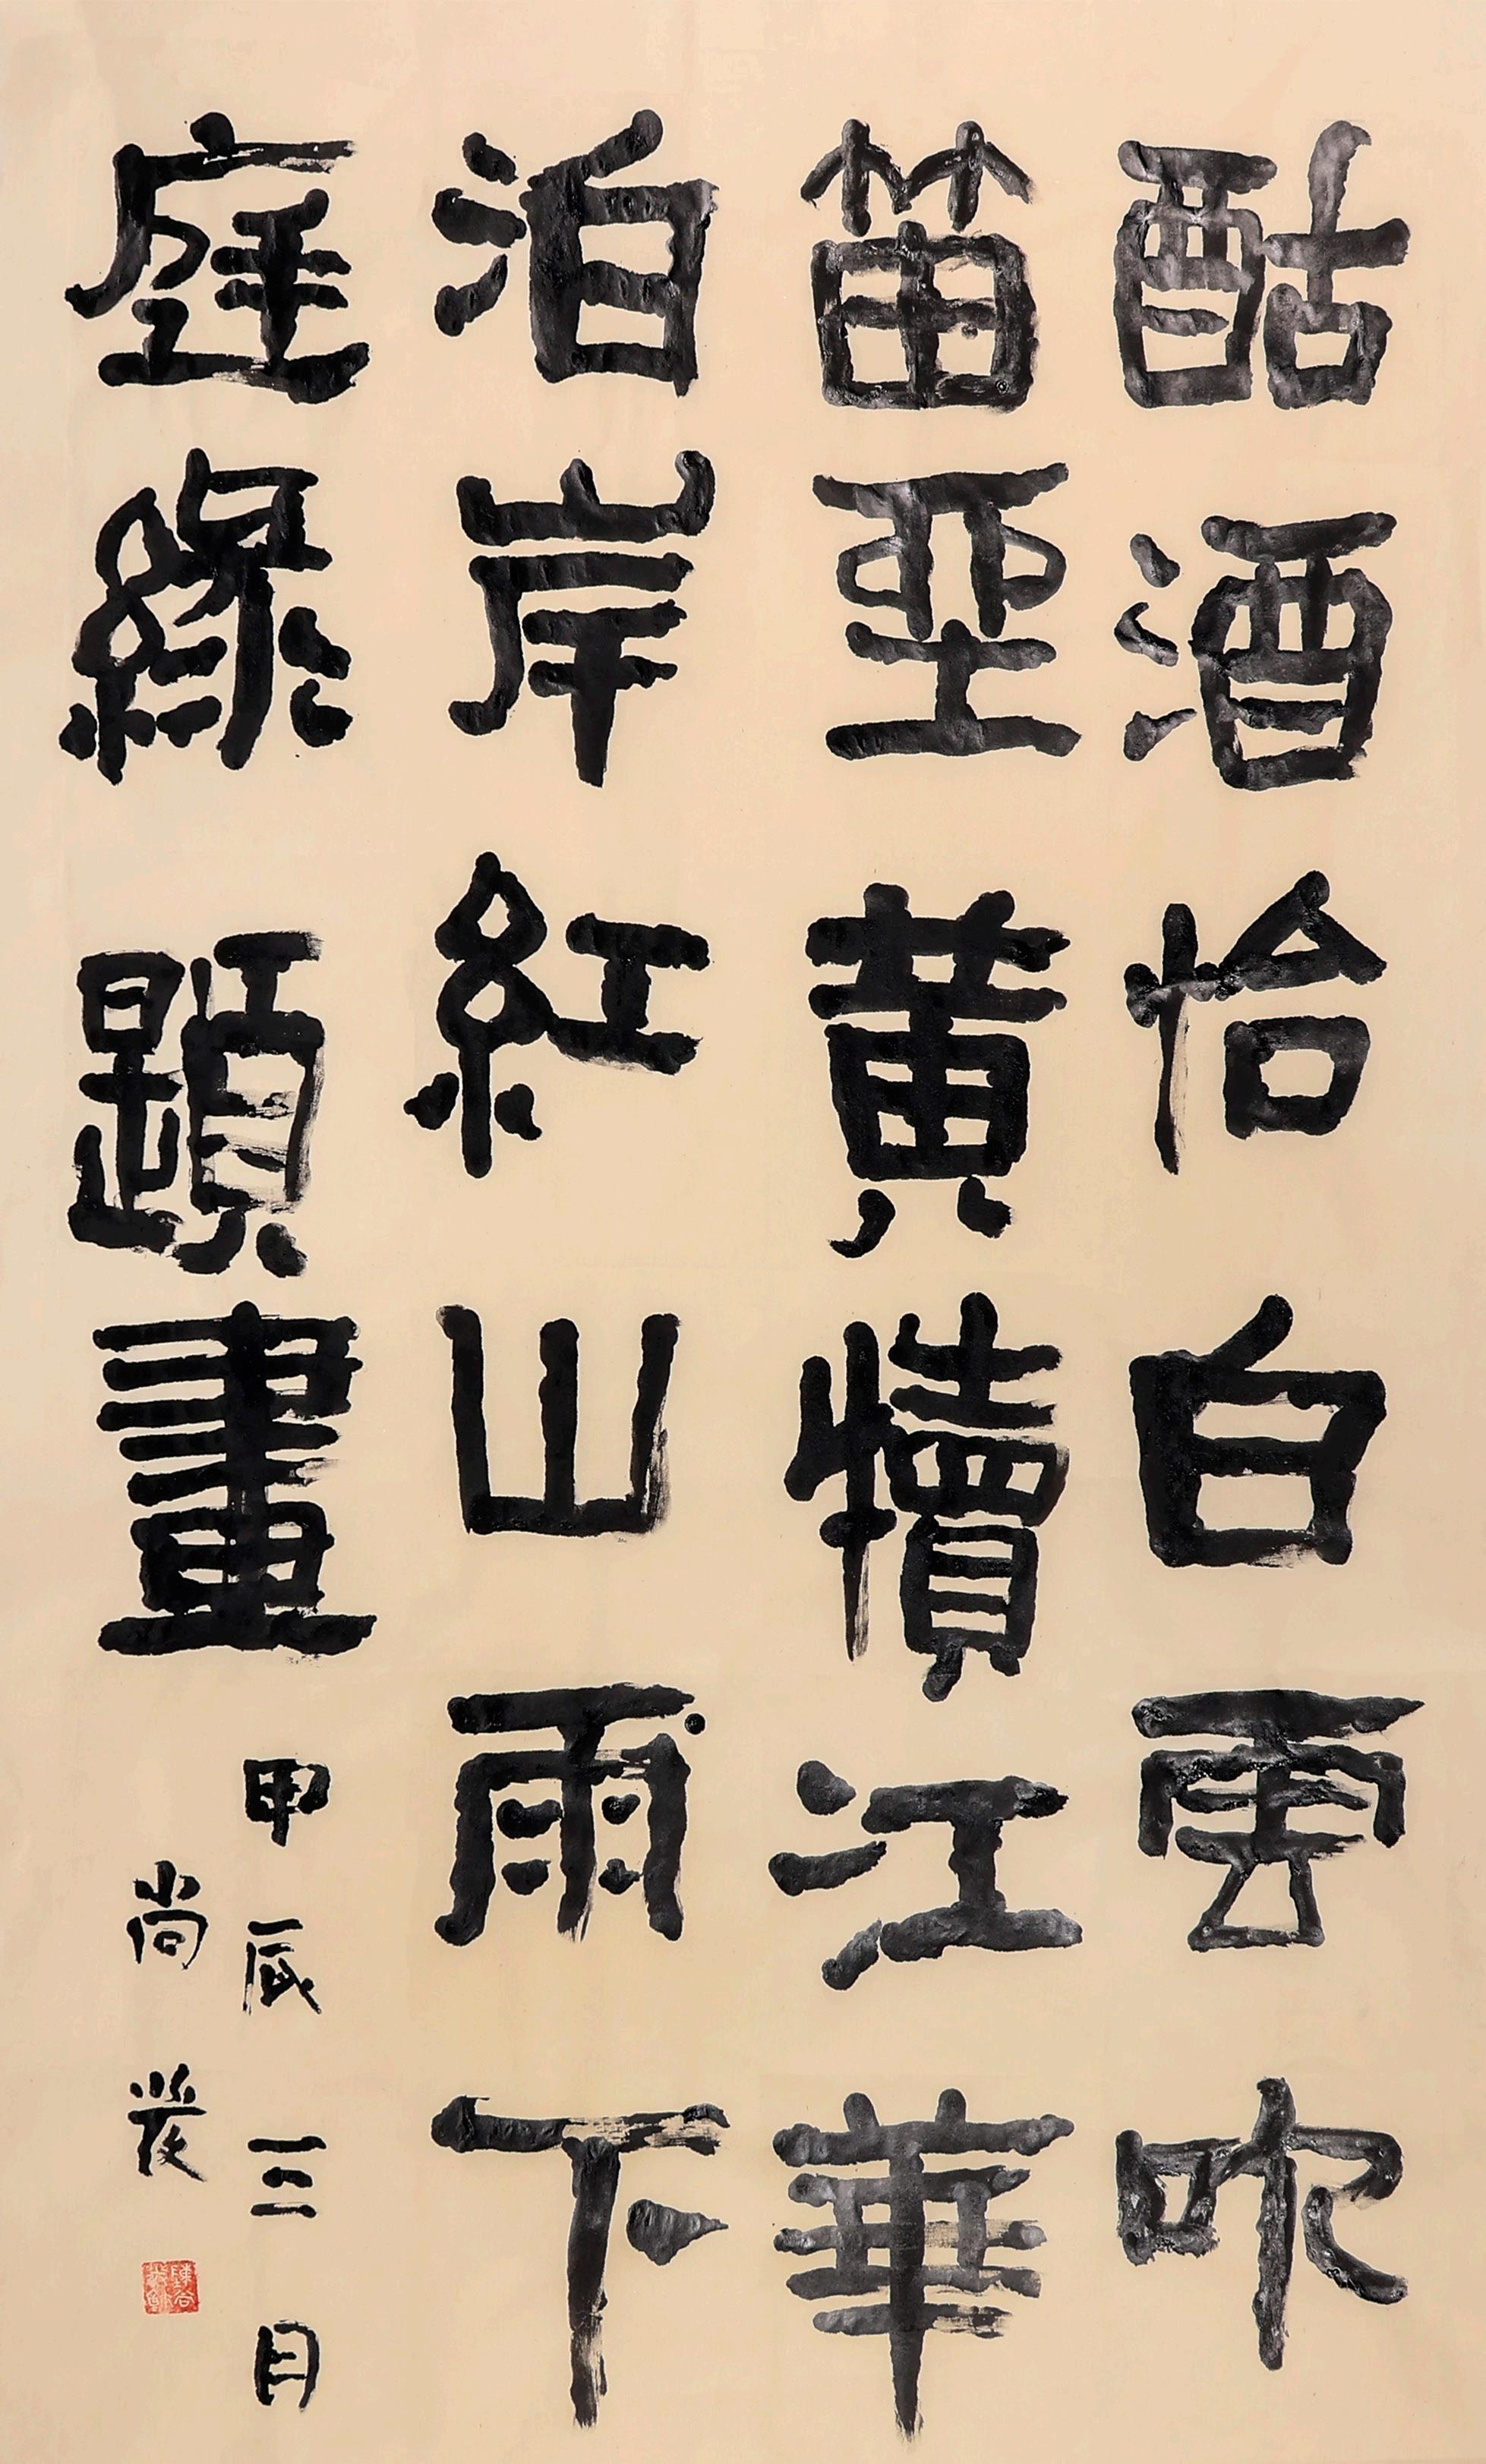 酤酒恰白雲吹
笛至黃犢江華
泊岸紅山雨下
庭綠題畫
甲辰三月
尚